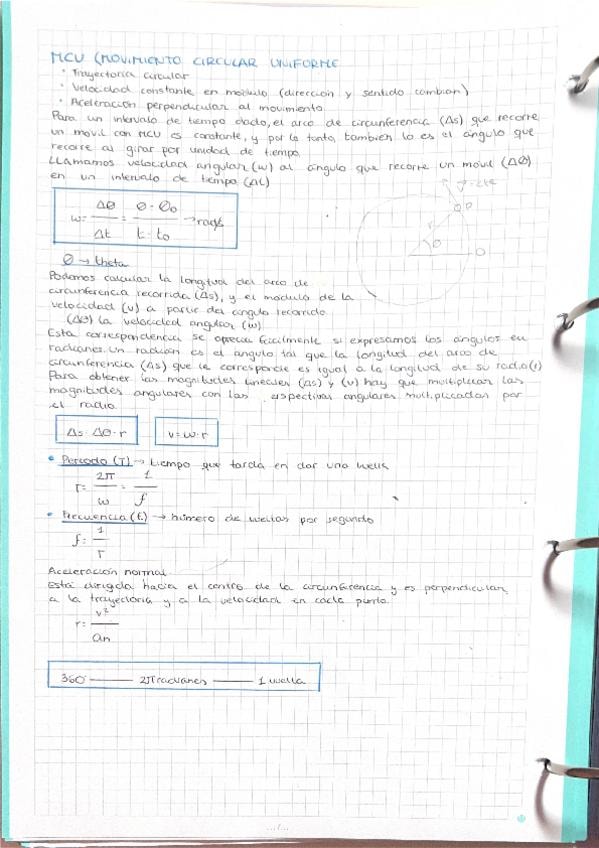 MCU (MOVIMIENTO CIRCULAR UNIFORME
· Trayectoria circular
· Velocidad constante en módulo (dirección y sentido cambian)
· Aceleración perpendicular al movimiento
Para un intervalo de tiempo dado, el arco de circunferencia (Δs) que recorre
un móvil con MCU es constante, y por lo tanto, también lo es el ángulo que
recorre al girar por unidad de tiempo.
LLamamos velocidad angular (w) al ángulo que recorre un móvil (ΔØ)
en un intervalo de tiempo (Δt)
v=cte
w= ΔØ/Δt = Ø-Ø₀/t-t₀ → rad/s
P
r
Ø
O
Ø → theta
Podemos calcular la longitud del arco de
circunferencia recorrida (Δs), y el módulo de la
velocidad (v) a partir del ángulo recorrido
(ΔØ) la velocidad angular (w)
Esta correspondencia se aprecia fácilmente si expresamos los ángulos en
radianes. Un radián es el ángulo tal que la longitud del arco de
circunferencia (Δs) que le corresponde es igual a la longitud de su radio (r)
Para obtener las magnitudes lineales (Δs) y (v) hay que multiplicar las
magnitudes angulares con las respectivas angulares multiplicadas por
el radio.
Δs=ΔØ·r v=w·r
• Periodo (T) → tiempo que tarda en dar una vuelta
T= 2π/w = 1/f
• Frecuencia (f) → número de vueltas por segundo
f= 1/T
Aceleración normal
Está dirigida hacia el centro de la circunferencia y es perpendicular
a la trayectoria y a la velocidad en cada punto.
r= v²/an
360° —— 2π radianes —— 1 vuelta